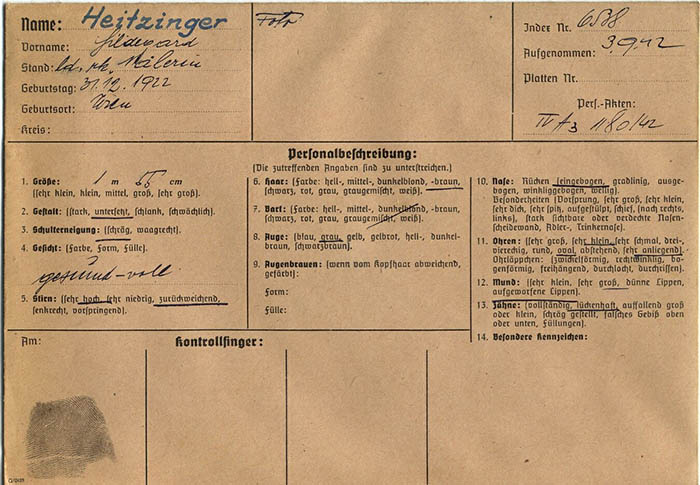 Name: Heitzinger
Vorname: Hildegard
Stand: ld. rk. Malerin
Geburtstag: 31.12.1922
Geburtsort: Wien
Kreis:
Foto
Index Nr. 6588
Aufgenommen: 3.9.42
Platten Nr.
Pers.-Akten:
IV A3 1180/42
Personalbeschreibung:
(Die zutreffenden Angaben sind zu unterstreichen.)
1. Größe: 1 m 55 cm
(sehr klein, klein, mittel, groß, sehr groß).
2. Gestalt: (stark, untersetzt, schlank, schwächlich).
3. Schulterneigung: (schräg, waagrecht).
4. Gesicht: (Farbe, Form, Fülle).
gesund-voll
5. Stirn: (sehr hoch, sehr niedrig, zurückweichend,
senkrecht, vorspringend).
6. Haar: (Farbe: hell-, mittel-, dunkelblond, -braun,
schwarz, rot, grau, graugemischt, weiß).
7. Bart: (Farbe: hell-, mittel- dunkelblond, -braun,
schwarz, rot, grau, graugemischt, weiß).
8. Auge: (blau, grau, gelb, gelbrot, hell-, dunkel-
braun, schwarzbraun).
9. Augenbrauen: (wenn vom Kopfhaar abweichend,
gefärbt):
Form:
Fülle:
10. Nase: Rücken (eingebogen, gradlinig, ausge-
bogen, winkliggebogen, wellig).
Besonderheiten (Vorsprung, sehr groß, sehr klein,
sehr dick, sehr spitz, aufgestülpt, schief, (nach rechts,
links), stark sichtbare oder verdeckte Nasen-
scheidewand, Adler-, Trinkernase).
11. Ohren: (sehr groß, sehr klein, sehr schmal, drei-,
viereckig, rund, oval, abstehend, sehr anliegend).
Ohrläppchen: (zwickelförmig, rechtwinklig, bo-
genförmig, freihängend, durchlocht, durchrissen).
12. Mund: (sehr klein, sehr groß, dünne Lippen,
aufgeworfene Lippen).
13. Zähne: (vollständig, lückenhaft, auffallend groß
oder klein, schräg gestellt, falsches Gebiß oben
oder unten, Füllungen).
14. Besondere Kennzeichen:
Am:
Kontrollfinger: